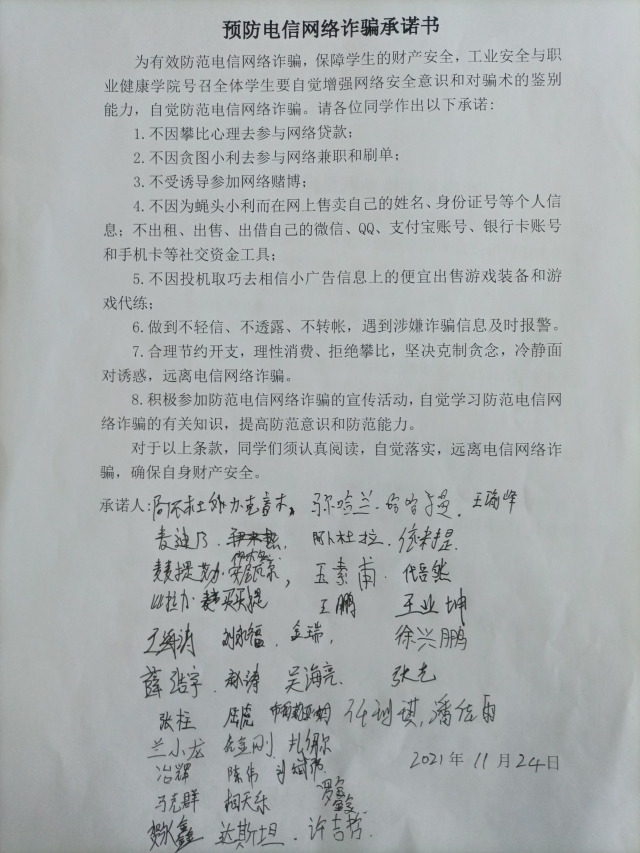 预防电信网络诈骗承诺书
为有效防范电信网络诈骗，保障学生的财产安全，工业安全与职
业健康学院号召全体学生要自觉增强网络安全意识和对骗术的鉴别
能力，自觉防范电信网络诈骗。请各位同学作出以下承诺：
1.不因攀比心理去参与网络贷款；
2.不因贪图小利去参与网络兼职和刷单；
3.不受诱导参加网络赌博；
4.不因为蝇头小利而在网上售卖自己的姓名、身份证号等个人信
息；不出租、出售、出借自己的微信、QQ、支付宝账号、银行卡账号
和手机卡等社交资金工具；
5.不因投机取巧去相信小广告信息上的便宜出售游戏装备和游
戏代练；
6.做到不轻信、不透露、不转帐，遇到涉嫌诈骗信息及时报警。
7.合理节约开支，理性消费、拒绝攀比，坚决克制贪念，冷静面
对诱惑，远离电信网络诈骗。
8.积极参加防范电信网络诈骗的宣传活动，自觉学习防范电信网
络诈骗的有关知识，提高防范意识和防范能力。
对于以上条款，同学们须认真阅读，自觉落实，远离电信网络诈
骗，确保自身财产安全。
承诺人：
麦迪乃
王素甫
王鹏 王业坤
金瑞 徐兴鹏
薛浩宇 吴海亮
张柱
兰小龙
冶辉 陈伟
马克群
达斯坦 许吉哲
2021年11月24日